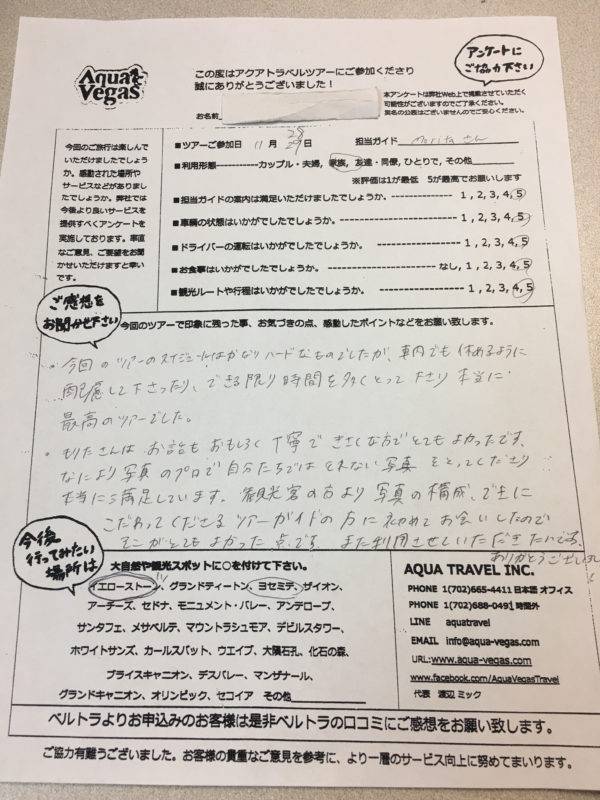 Aqua Vegas
この度はアクアトラベルツアーにご参加くださり
誠にありがとうございました！
アンケートに
ご協力下さい
お名前
本アンケートは弊社Web上で掲載させていただく
可能性がございますのでご了承ください。
実名の公表はございませんのでご安心ください。
今回のご旅行は楽しんで
いただけましたでしょう
か。感動された場所や
サービスなどがありまし
たでしょうか。弊社では
今後より良いサービスを
提供すべくアンケートを
実施しております。率直
なご意見、ご要望をお聞
かせいただけますと幸い
です。
■ツアーご参加日 11月 28 29日 担当ガイド moritaさん
■利用形態------------カップル・夫婦, 家族, 友達・同僚, ひとりで, その他
※評価は1が最低 5が最高でお願いします
■担当ガイドの案内は満足いただけましたでしょうか。---------------- 1 , 2, 3, 4, 5
■車輌の状態はいかがでしたでしょうか。------------------------ 1 , 2, 3, 4, 5
■ドライバーの運転はいかがでしたでしょうか。 ------------------- 1 , 2, 3, 4, 5
■お食事はいかがでしたでしょうか。 ---------------------- なし, 1 , 2, 3, 4, 5
■観光ルートや行程はいかがでしたでしょうか。-------------------- 1 , 2, 3, 4, 5
ご感想を
お聞かせ下さい
今回のツアーで印象に残った事、お気づきの点、感動したポイントなどをお願い致します。
・今回のツアーのスケジュールはかなりハードなものでしたが、車内でも休めるように
配慮して下さったり、できる限り時間を多くとって下さり本当に
最高のツアーでした。
・もりたさんは お話もおもしろく丁寧できさくな方でとてもよかったです。
なにより写真のプロで自分たちではとれない写真をとってくださり
本当に満足しています。観光客の方より写真の構成、
こだわってくださるツアーガイドの方に初めてお会いしたので
そこがとてもよかった点です。また利用させていただきたいです。
ありがとうございました
今後
行ってみたい
場所は
大自然や観光スポットに○を付けて下さい。
イエローストーン、グランドティートン、ヨセミテ、ザイオン、
アーチーズ、セドナ、モニュメント・バレー、アンテロープ、
サンタフェ、メサベルテ、マウントラシュモア、デビルスタワー、
ホワイトサンズ、カールスバット、ウエイブ、大隕石孔、化石の森、
ブライスキャニオン、デスバレー、マンザナール、
グランドキャニオン、オリンピック、セコイア その他
AQUA TRAVEL INC.
PHONE 1(702)665-4411 日本語 オフィス
PHONE 1(702)688-0491 時間外
LINE aquatravel
EMAIL info@aqua-vegas.com
URL:www.aqua-vegas.com
www.facebook.com/AquaVegasTravel
代表 渡辺 ミック
ベルトラよりお申込みのお客様は是非ベルトラの口コミにご感想をお願い致します。
ご協力有難うございました。お客様の貴重なご意見を参考に、より一層のサービス向上に努めてまいります。